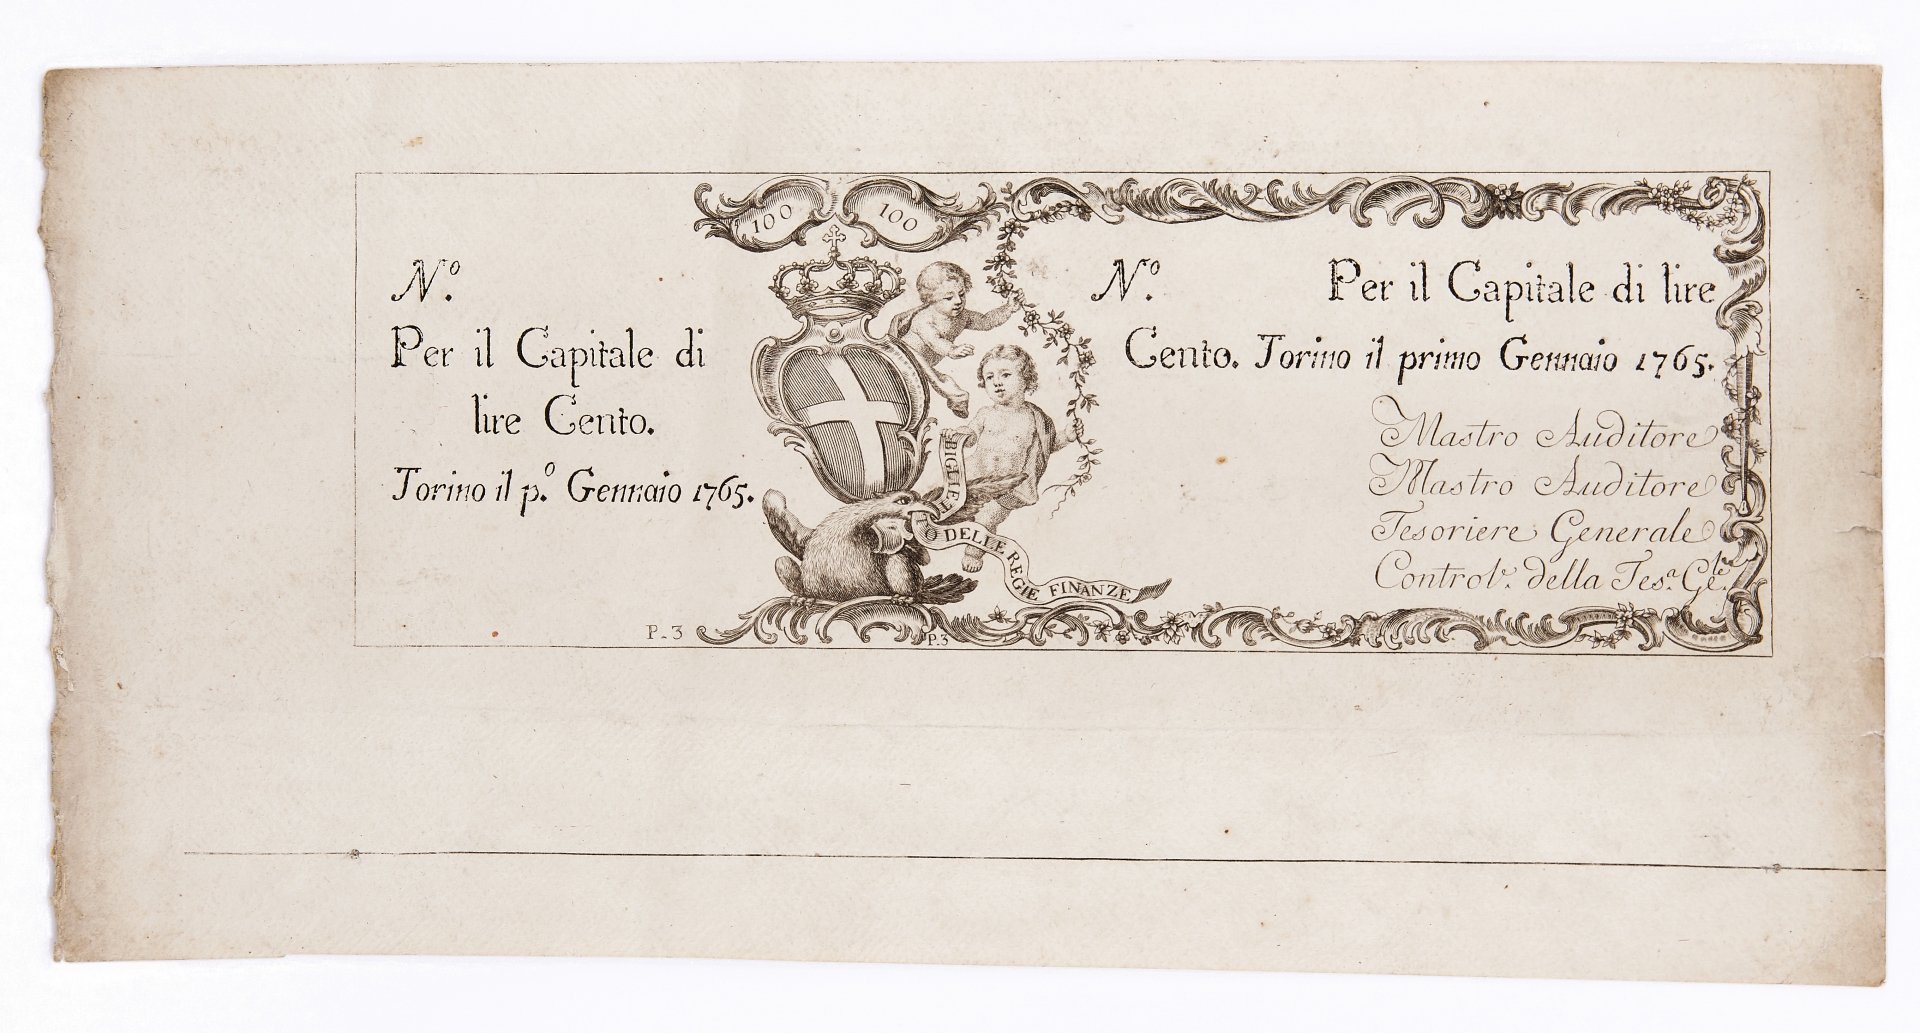 100 100
N.º
Per il Capitale di
lire Cento.
Torino il p.º Gennaio 1765.
BIGLIETTO DELLE REGIE FINANZE
N.º Per il Capitale di lire
Cento. Torino il primo Gennaio 1765.
Mastro Auditore
Mastro Auditore
Tesoriere Generale
Controlᵉ. della Tesᵃ. Gˡᵉ.
P-3
P.3